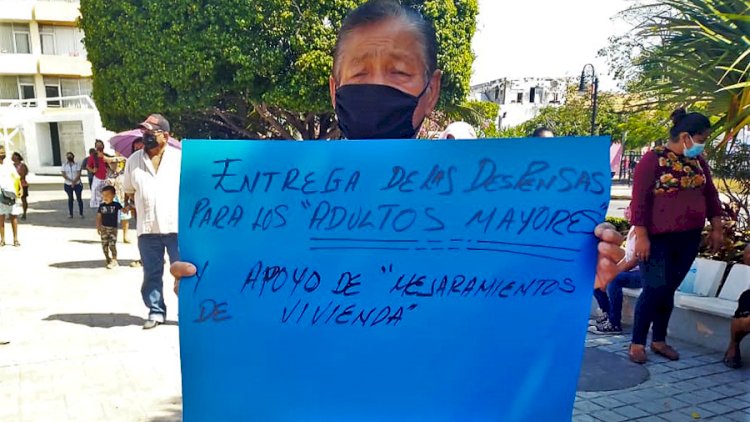 ENTREGA DE LAS DESPENSAS
PARA LOS "ADULTOS MAYORES"
Y APOYO DE "MEJARAMIENTOS
DE VIVIENDA"